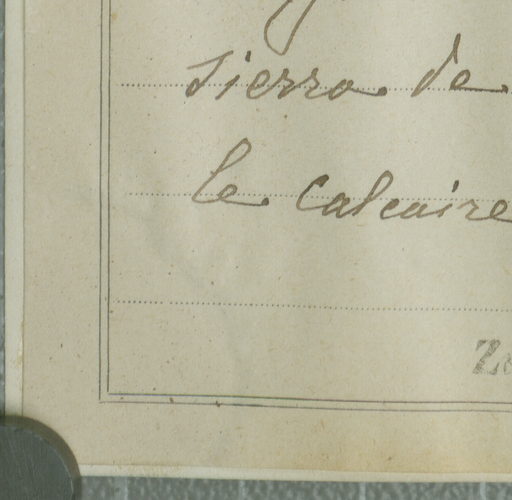 sierra de
le calcaire